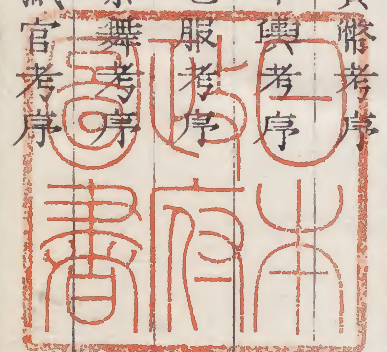 幣考序
輿考序
服考序
舞考序
官考序
日本
政府
圖書